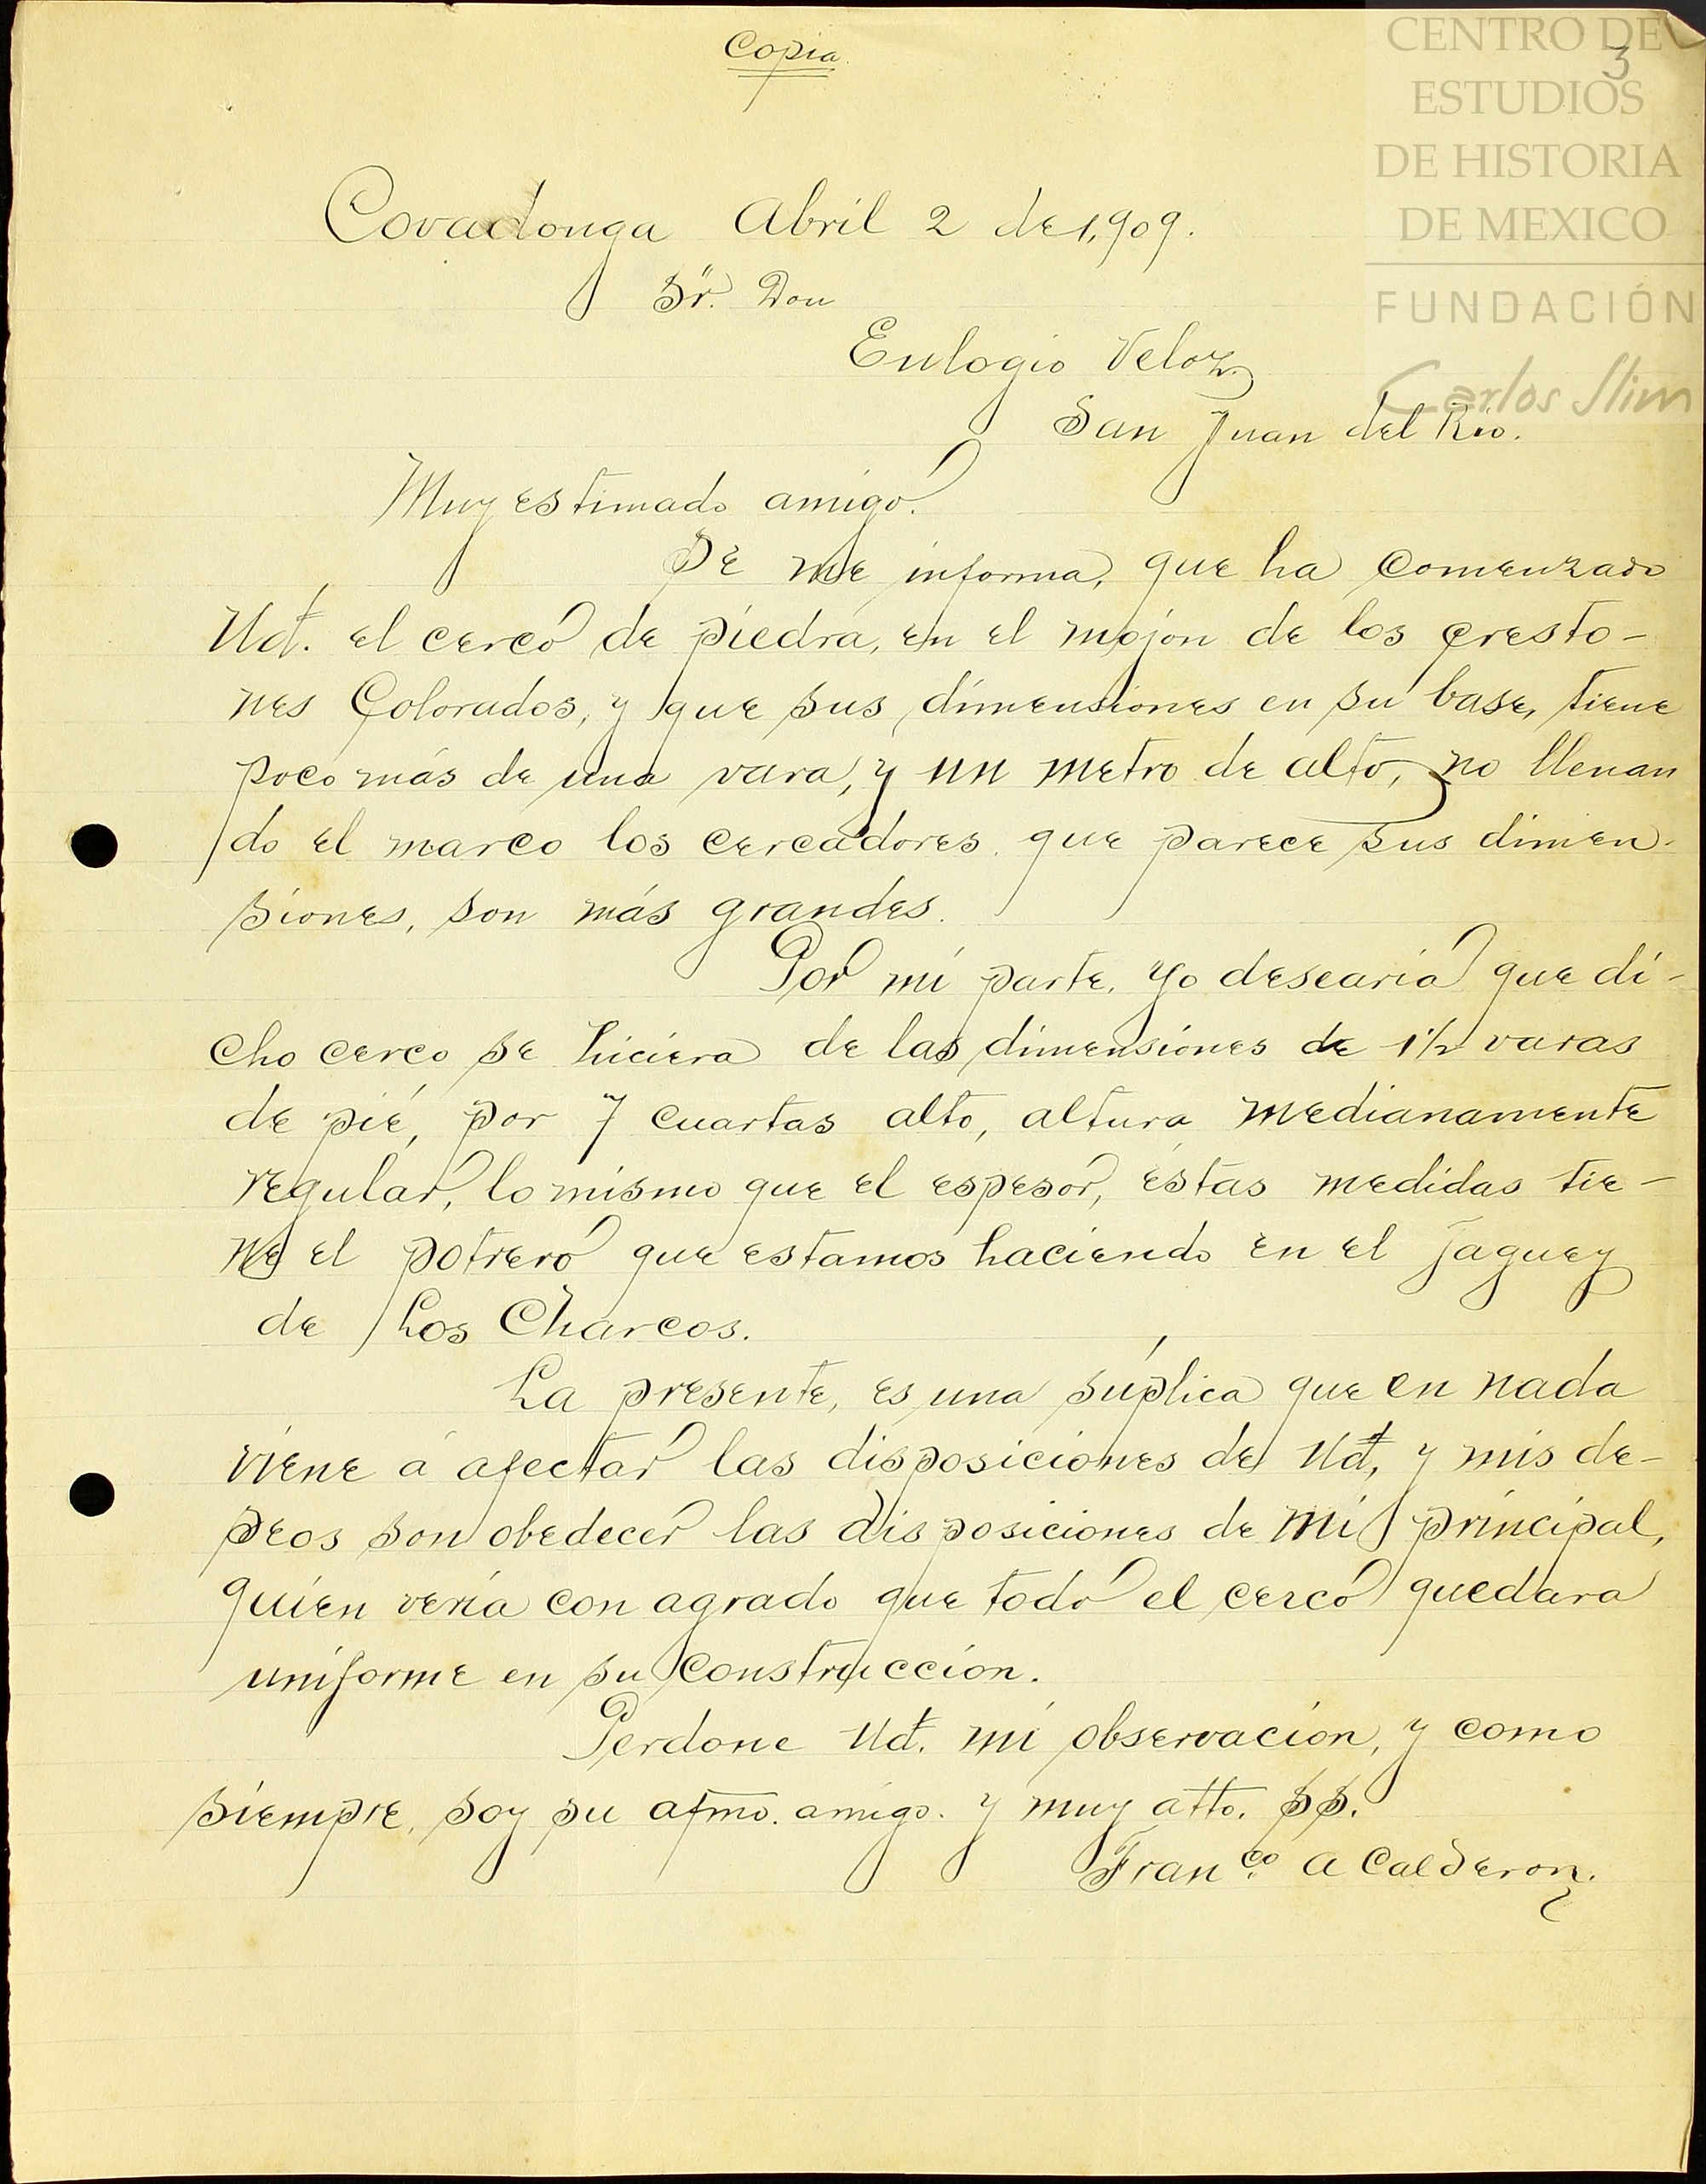 Copia.
3
CENTRO DE
ESTUDIOS
DE HISTORIA
DE MEXICO
FUNDACIÓN
Carlos Slim
Covadonga Abril 2 de 1,909.
Sr. Don
Eulogio Veloz.
San Juan del Rio.
Muy estimado amigo.
Se me informa, que ha comenzado
Ud. el cerco de piedra, en el mojon de los cresto-
nes Colorados, y que sus dimensiones en su base, tiene
poco más de una vara, y un metro de alto, no llenan
do el marco los cercadores, que parece sus dimen-
siones, son más grandes.
Por mi parte, yo desearia que di-
cho cerco se hiciera de las dimensiones de 1½ varas
de pié, por 7 cuartas alto, altura medianamente
regular, lo mismo que el espesor, éstas medidas tie-
ne el potrero que estamos haciendo en el jaguey
de Los Charcos.
La presente, es una súplica que en nada
viene á afectar las disposiciones de Ud, y mis de-
seos son obedecer las disposiciones de mi principal,
quien vería con agrado que todo el cerco quedara
uniforme en su construccion.
Perdone Ud. mi observacion, y como
siempre, soy su afmo. amigo. y muy atto. SS.
Franco. A Calderon.